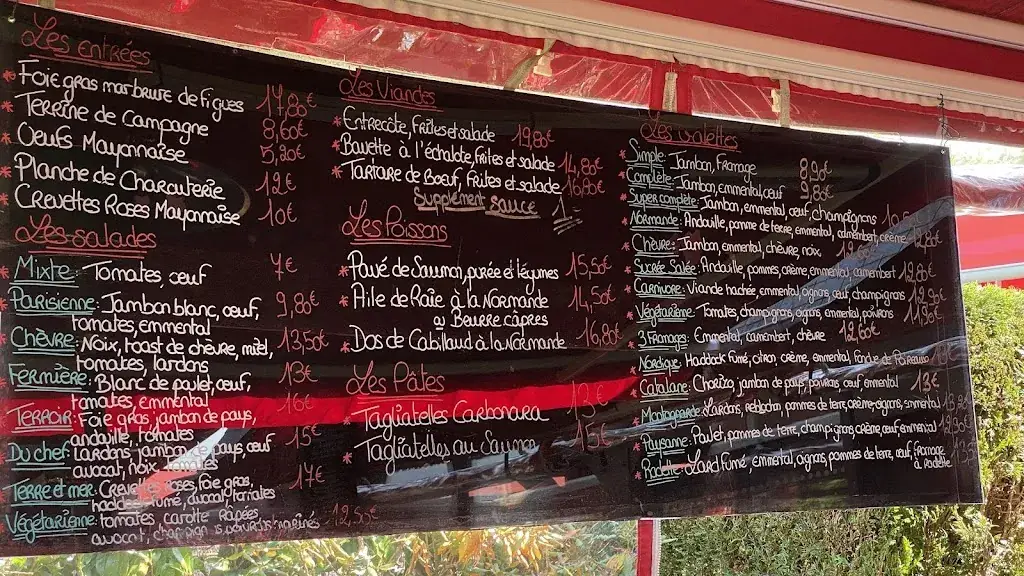 Les entrées
* Foie gras marbrure de figues 17,80€
* Terrine de Campagne 8,60€
* Oeufs Mayonnaise 5,20€
* Planche de Charcuterie 12€
* Crevettes Roses Mayonnaise 10€
Les salades
* Mixte: Tomates, œuf 7€
* Parisienne: Jambon blanc, œuf, 9,80€
tomates, emmental
Chèvre: Noix, toast de chèvre, miel, 13,50€
tomates, lardons
Fermière: Blanc de poulet, œuf, 13€
tomates, emmental
Terroir: Foie gras, jambon de pays, 16€
andouille, tomates
Du chef: Lardons, jambon de pays, œuf 15€
avocat, noix, tomates
Terre et mer: Crevettes roses, foie gras, 17€
haddock fumé, avocat, tomates
Végétarienne: tomates, carotte râpées, 12,55€
avocat, champignons, poivrons marinés
Les Viandes
* Entrecôte, Frites et salade 19,80€
* Bavette à l'échalote, Frites et salade 14,80€
* Tartare de Boeuf, Frites et salade 16,80€
Supplément sauce 1.-
Les Poissons
* Pavé de Saumon, purée et légumes 15,50€
* Aile de Raie à la Normande 14,50€
ou Beurre câpres
* Dos de Cabillaud à la Normande 16,80€
Les Pâtes
* Tagliatelles Carbonara 13€
* Tagliatelles au Saumon 15€
Les Galettes
* Simple: Jambon, Fromage 8,90€
* Complète: Jambon, emmental, œuf 9,80€
* Super complète: Jambon, emmental, œuf, champignons
* Normande: Andouille, pomme de terre, emmental, camembert, crème
* Chèvre: Jambon, emmental, chèvre, noix
* Sucrée Salée: Andouille, pommes, crème, emmental, camembert 12,80€
* Carnivore: Viande hachée, emmental, oignons, œuf, champignons 12,90€
* Végétarienne: Tomates, champignons, oignons, emmental, poivrons 11,90€
* 3 Fromages: Emmental, camembert, chèvre 12,60€
* Nordique: Haddock fumé, citron crème, emmental, Fondue de Poireaux
* Catalane: Chorizo, jambon de pays, poivrons œuf emmental 13€
* Montagnarde: Lardons, reblochon, pommes de terre, crème, oignons, emmental
* Paysanne: Poulet, pommes de terre, champignons crème, œuf emmental
* Raclette: Lard fumé, emmental, oignons, pommes de terre, œuf, fromage
à raclette